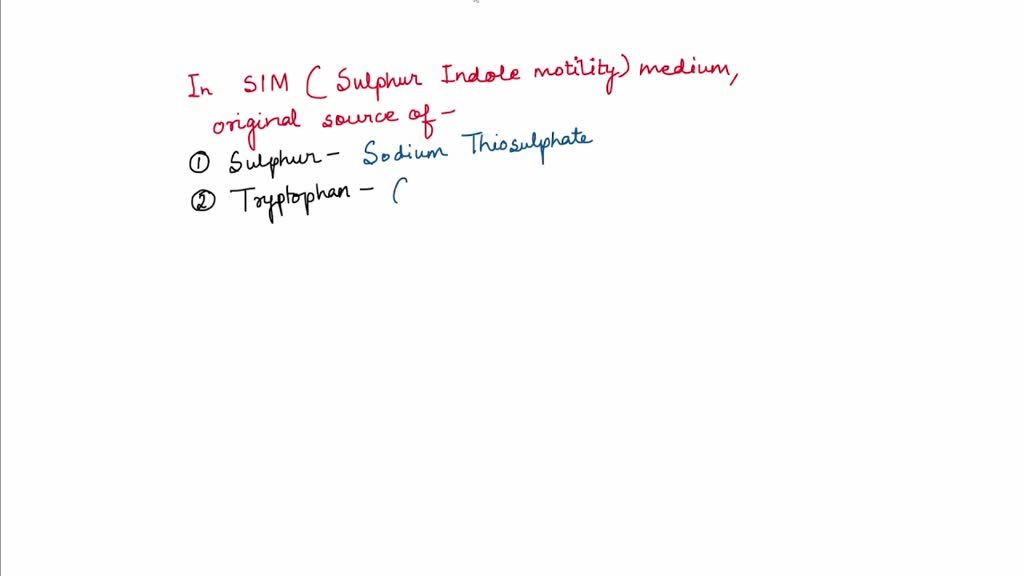 In SIM ( Sulphur Indole motility) medium,
original source of -
① Sulphur - Sodium Thiosulphate
② Tryptophan - (